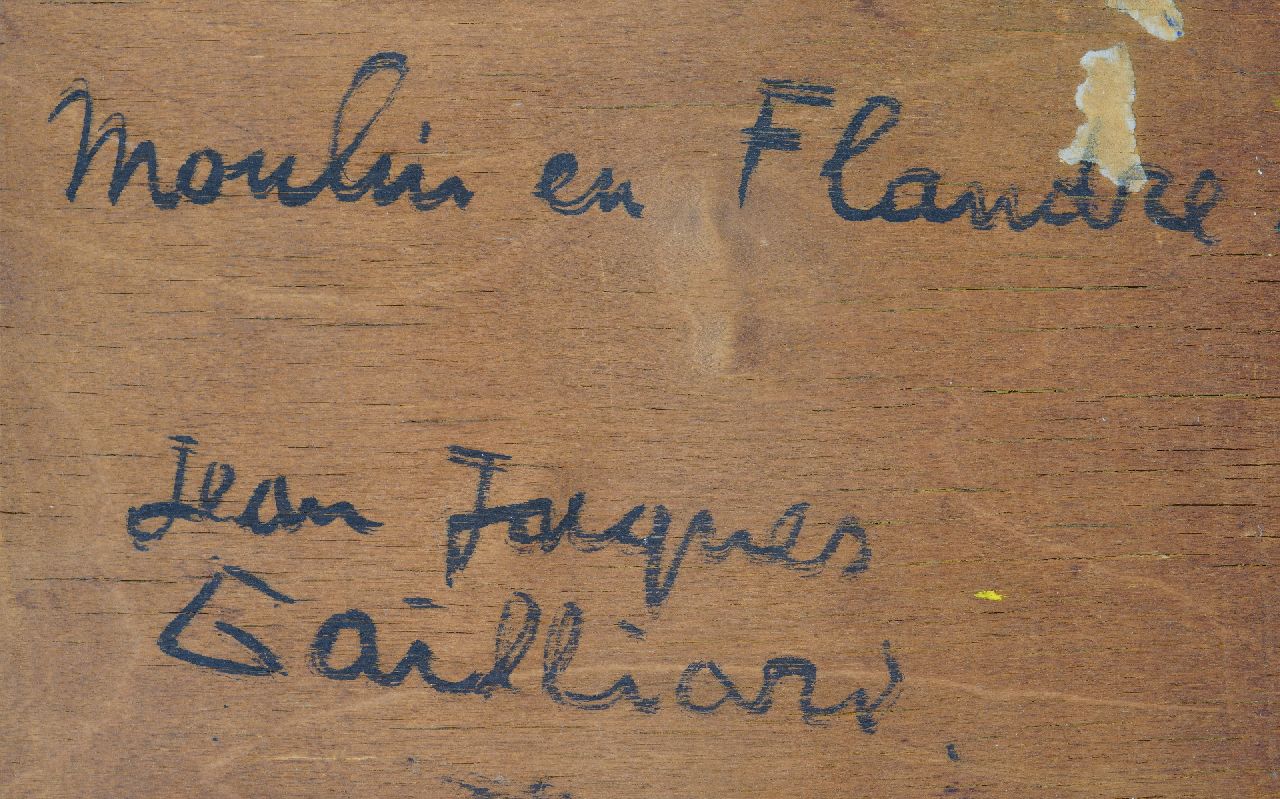 Moulin en Flandre
Jean Jacques
Gailliard